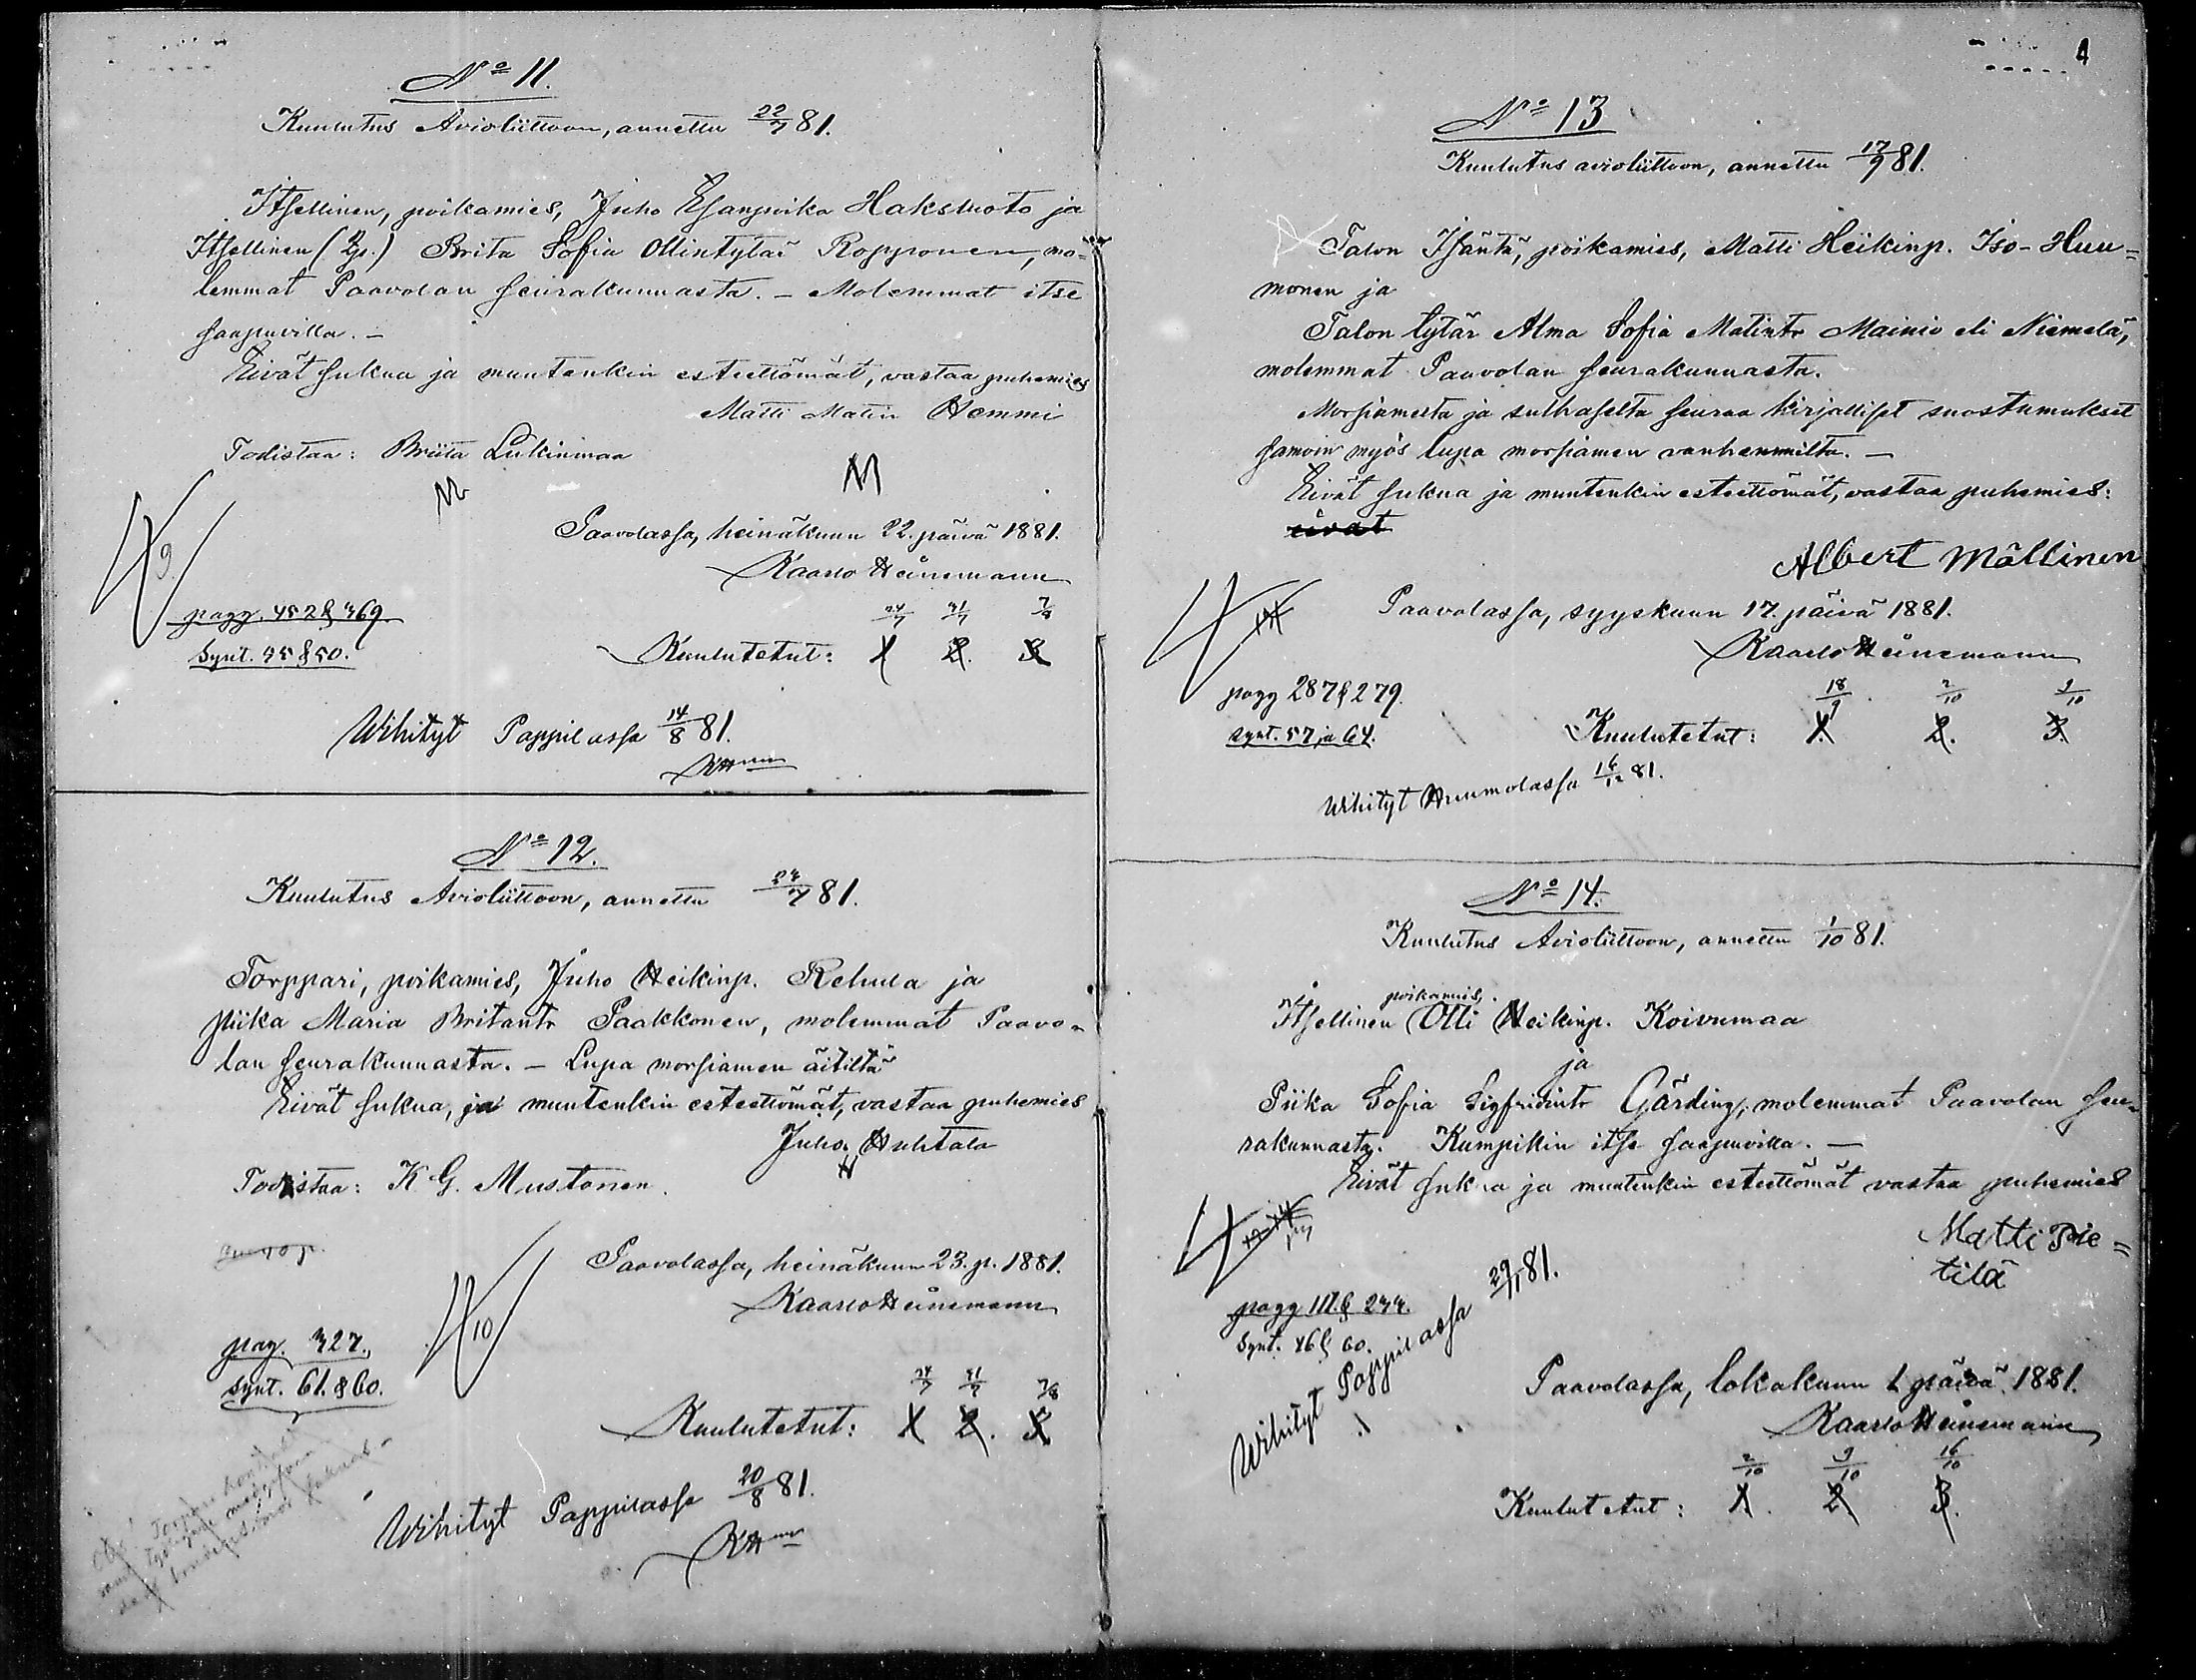 No 11.
Kuulutus Avioliittoon, annettu 22/7 81.
Itsellinen, poikamies, Juho Esanpoika Haksluoto ja
Itsellinen (Lp.) Brita Sofia Ollintytär Ropponen, mo-
lemmat Paavolan seurakunnasta. – Molemmat itse
saapuvilla. –
Eivät sukua ja muutenkin esteettömät, vastaa puhemies
Matti Matin Hemmi
Todistaa: Briita Lukinmaa
Paavolassa, heinäkuun 22. päivä 1881.
Kaarlo Heinemann
9.
pagg. 452 & 369.
Synt. 45 & 50.
24/7 31/7 7/8
Kuulutetut: 1 2. 3
Wihityt Pappilassa 14/8 81.
No 12.
Kuulutus Avioliittoon, annettu 23/7 81.
Torppari, poikamies, Juho Heikinp. Rehula ja
piika Maria Britantr Paakkonen, molemmat Paavo-
lan seurakunnasta. – Lupa morsiamen äitiltä
Eivät sukua, ja muutenkin esteettömät, vastaa puhemies
Juho Huhtala
Todistaa: K. G. Mustonen.
Paavolassa, heinäkuun 23. p. 1881.
Kaarlo Heinemann
10
pag. 327.,
synt. 61. & 60.
24/7 31/7 7/8
Kuulutetut: 1 2. 3
Wihityt Pappilassa 20/8 81.
4
No 13
Kuulutus avioliittoon, annettu 17/9 81.
Talon Isäntä, poikamies, Matti Heikinp. Iso-Huu=
monen ja
Talon tytär Alma Sofia Matintr Mainio eli Niemelä,
molemmat Paavolan seurakunnasta.
Morsiamelta ja sulhaselta seuraa kirjalliset suostumukset
samoin myös lupa morsiamen vanhemmilta. –
Eivät sukua ja muutenkin esteettömät, vastaa puhemies:
eivat
Albert Mällinen
Paavolassa, syyskuun 17. päivä 1881.
Kaarlo Heinemann
pagg 287 & 279.
synt. 57 ja 64.
18/9 2/10 9/10
Kuulutetut: 1. 2. 3.
Wihityt Huumolassa 81.
No 14.
Kuulutus Avioliittoon, annettu 1/10 81.
poikamies,
Itsellinen Olli Heikinp. Koivumaa
ja
Piika Sofia Sigfridintr Gärding, molemmat Paavolan seu-
rakunnasta. Kumpikin itse saapuvilla. –
Eivät sukua ja muutenkin esteettömät vastaa puhemies
Matti Pie=
tilä
pagg 111. & 244.
Synt. 46 & 60.
Wihityt Pappilassa 29/11 81.
Paavolassa, lokakuun 1. päivä 1881.
Kaarlo Heinemann
2/10 9/10 16/10
Kuulutetut: 1. 2 3.